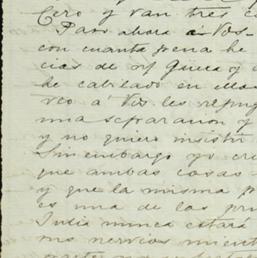 Cero y van tres
Paso ahora á Vds-
con cuanta pena he
cias de
he cabilado en ellas
veo á Vds les repug
una separacion y
y no quiero insisti
Sin embargo yo cre
que ambas cosas
y que la misma p
es una de las pru
India nunca estará
mis nervios mient